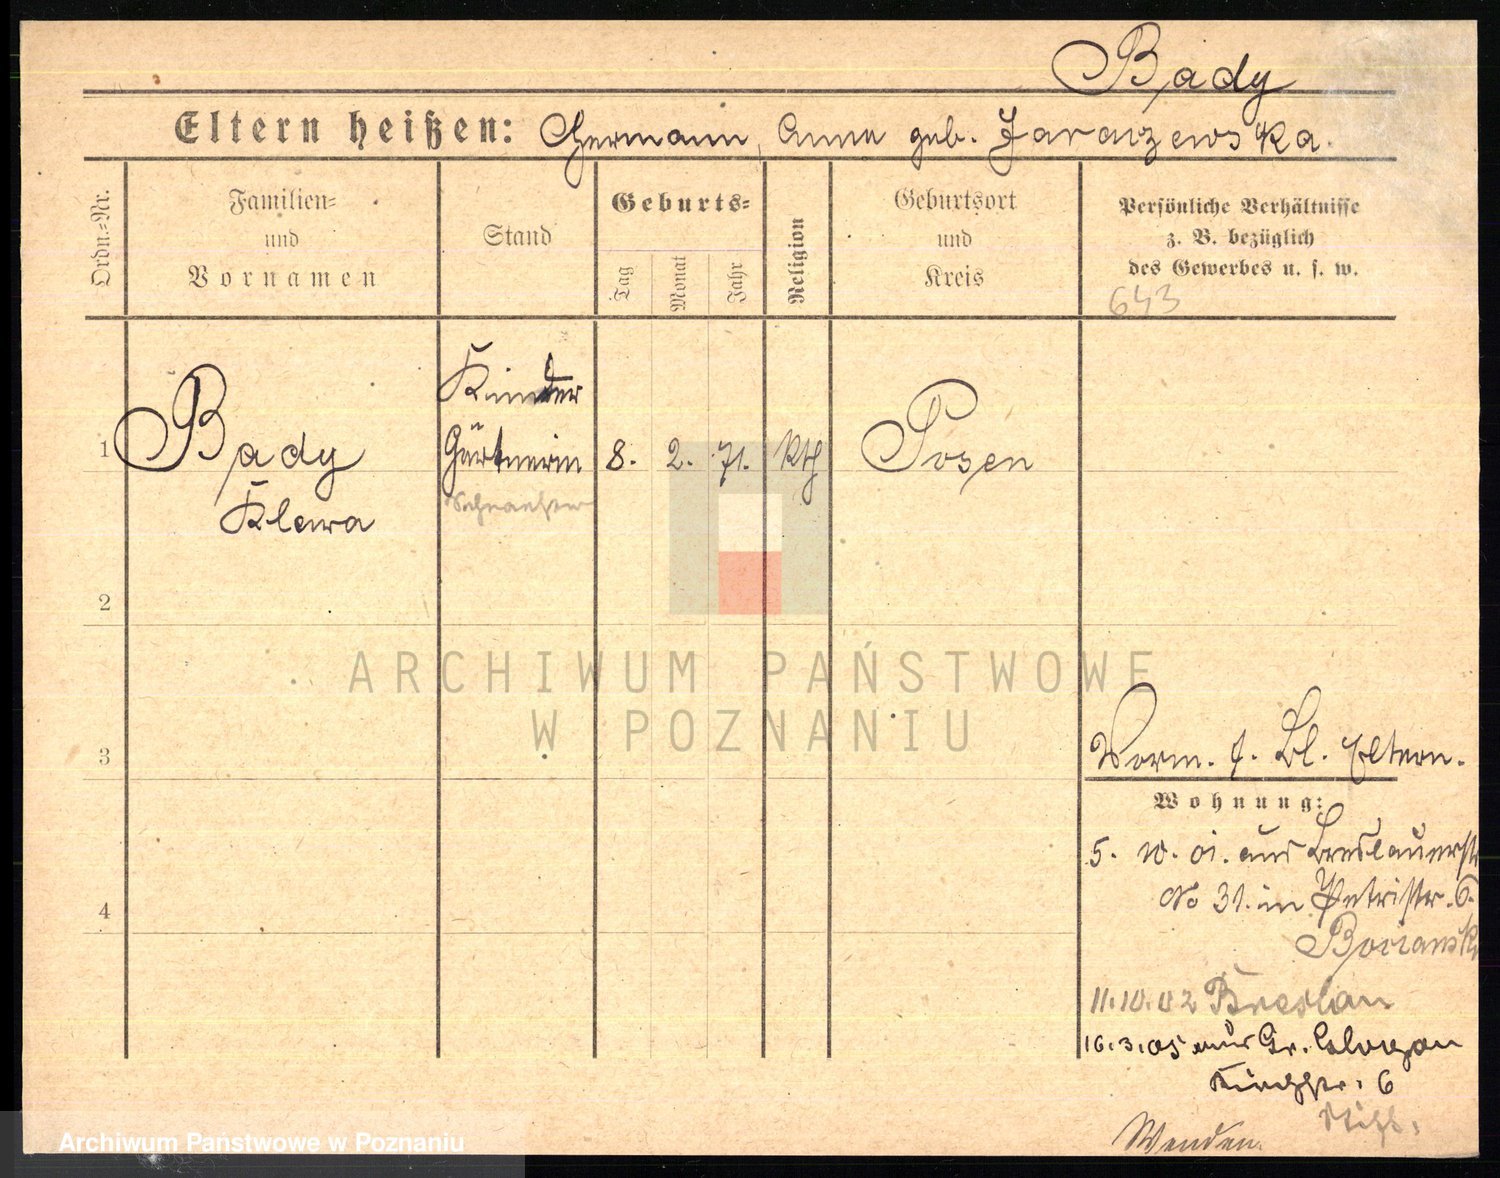 Bady
Eltern heißen: Hermann, Anna geb. Jaraczewska.
Ordn.-Nr.
Familien- und Vornamen
Stand
Geburts-
Tag
Monat
Jahr
Religion
Geburtsort und Kreis
Persönliche Verhältnisse
z. B. bezüglich
des Gewerbes u. s. w.
643
Kinder
1 Bady Gärtnerin 8. 2. 71. Kth Posen
Klara
2
ARCHIWUM PAŃSTWOWE
W POZNANIU
3
Vorm. f. Bl. Eltern.
Wohnung:
5. 10. 01. aus Breslauerstr
No 31. in Petristr. 6.
4
11.10.02 Breslau
16.3.05 aus Gr. Glogau
6
Wenden.
Archiwum Państwowe w Poznaniu